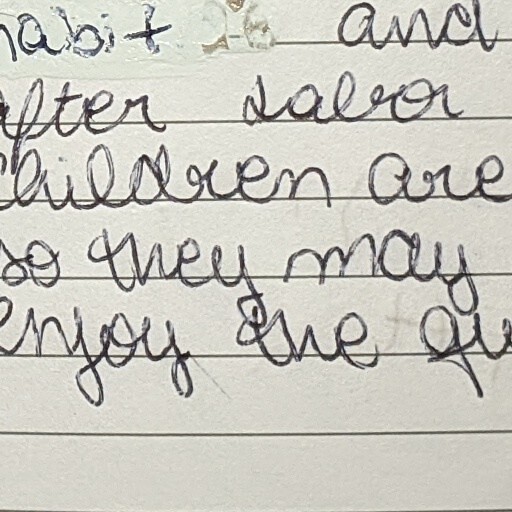 habit is and
after labor
children are
so they may
enjoy the qu